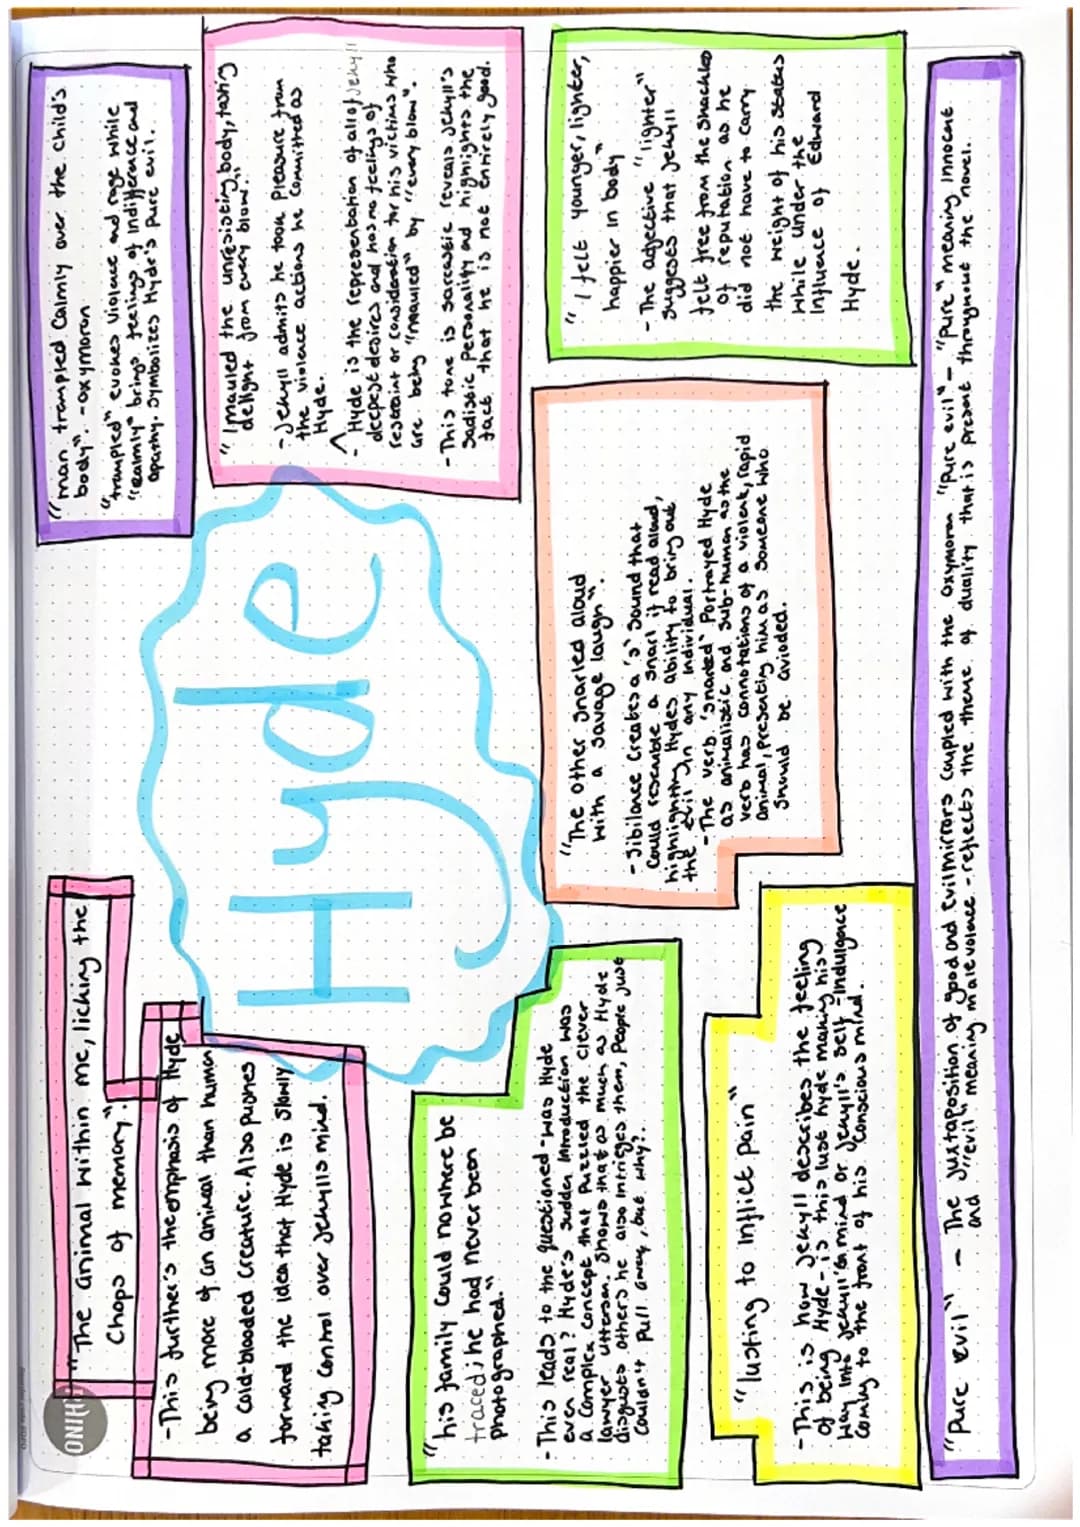 "The animal within me, licking the
Chops of memory".
- This further's the emphasis of Hyde
being more of an animal than human
a cold-blooded creature. Also pushes
forward the idea that Hyde is slowly
taking control over Jekylls mind.
"man trampled Calmly over the child's
body". - oxymoron
"trampled" evokes violence and rage while
"calmly" brings feelings of indifference and
apathy. Symbolizes Hyde's pure evil.
Hyde
"I mauled the unresisting body, tasting
delight from every blow."
- Jekyll admits he took pleasure from
the violence actions he committed as
Hyde.
- Hyde is the representation of all of Jekyll
deepest desires and has no feelings of
restraint or consideration for his victims who
are being "mauled" by "every blow".
- This tone is sarcastic reveals Jekyll's
Sadistic personality and highlights the
fact that he is not entirely good.
"his family Could nowhere be
traced; he had never been
photographed."
- This leads to the questioned - was Hyde
even real? Hyde's sudden introduction was
a complex concept that puzzled the clever
lawyer Utterson. Shows that as much as Hyde
disgusts others he also intrigues them, People just
Couldn't pull away, but why?.
"The other snarled aloud
with a savage laugh".
- Sibilance creates a 's' sound that
Could resemble a snarl if read aloud,
highlighting Hydes ability to bring out
the evil in any individual.
- The verb 'snarled' Portrayed Hyde
as animalistic and sub-human as the
verb has connotations of a violent, rapid
animal, presenting him as someone who
should be avioded.
"I felt younger, lighter,
happier in body"
- The adjective "lighter"
suggests that Jekyll
felt free from the shackles
of reputation as he
did not have to carry
the weight of his status
while under the
influence of Edward
Hyde.
"lusting to inflict pain"
- This is how Jekyll describes the feeling
of being Hyde - is this lust hyde making his
way into Jekyll's mind or Jekyll's self-indulgence
coming to the front of his conscious mind.
"pure evil" - The juxtaposition of good and evil mirrors coupled with the oxymoron "pure evil" - "pure" meaning innocent
and "evil" meaning malevolence - reflects the theme of duality that is present throughout the novel.